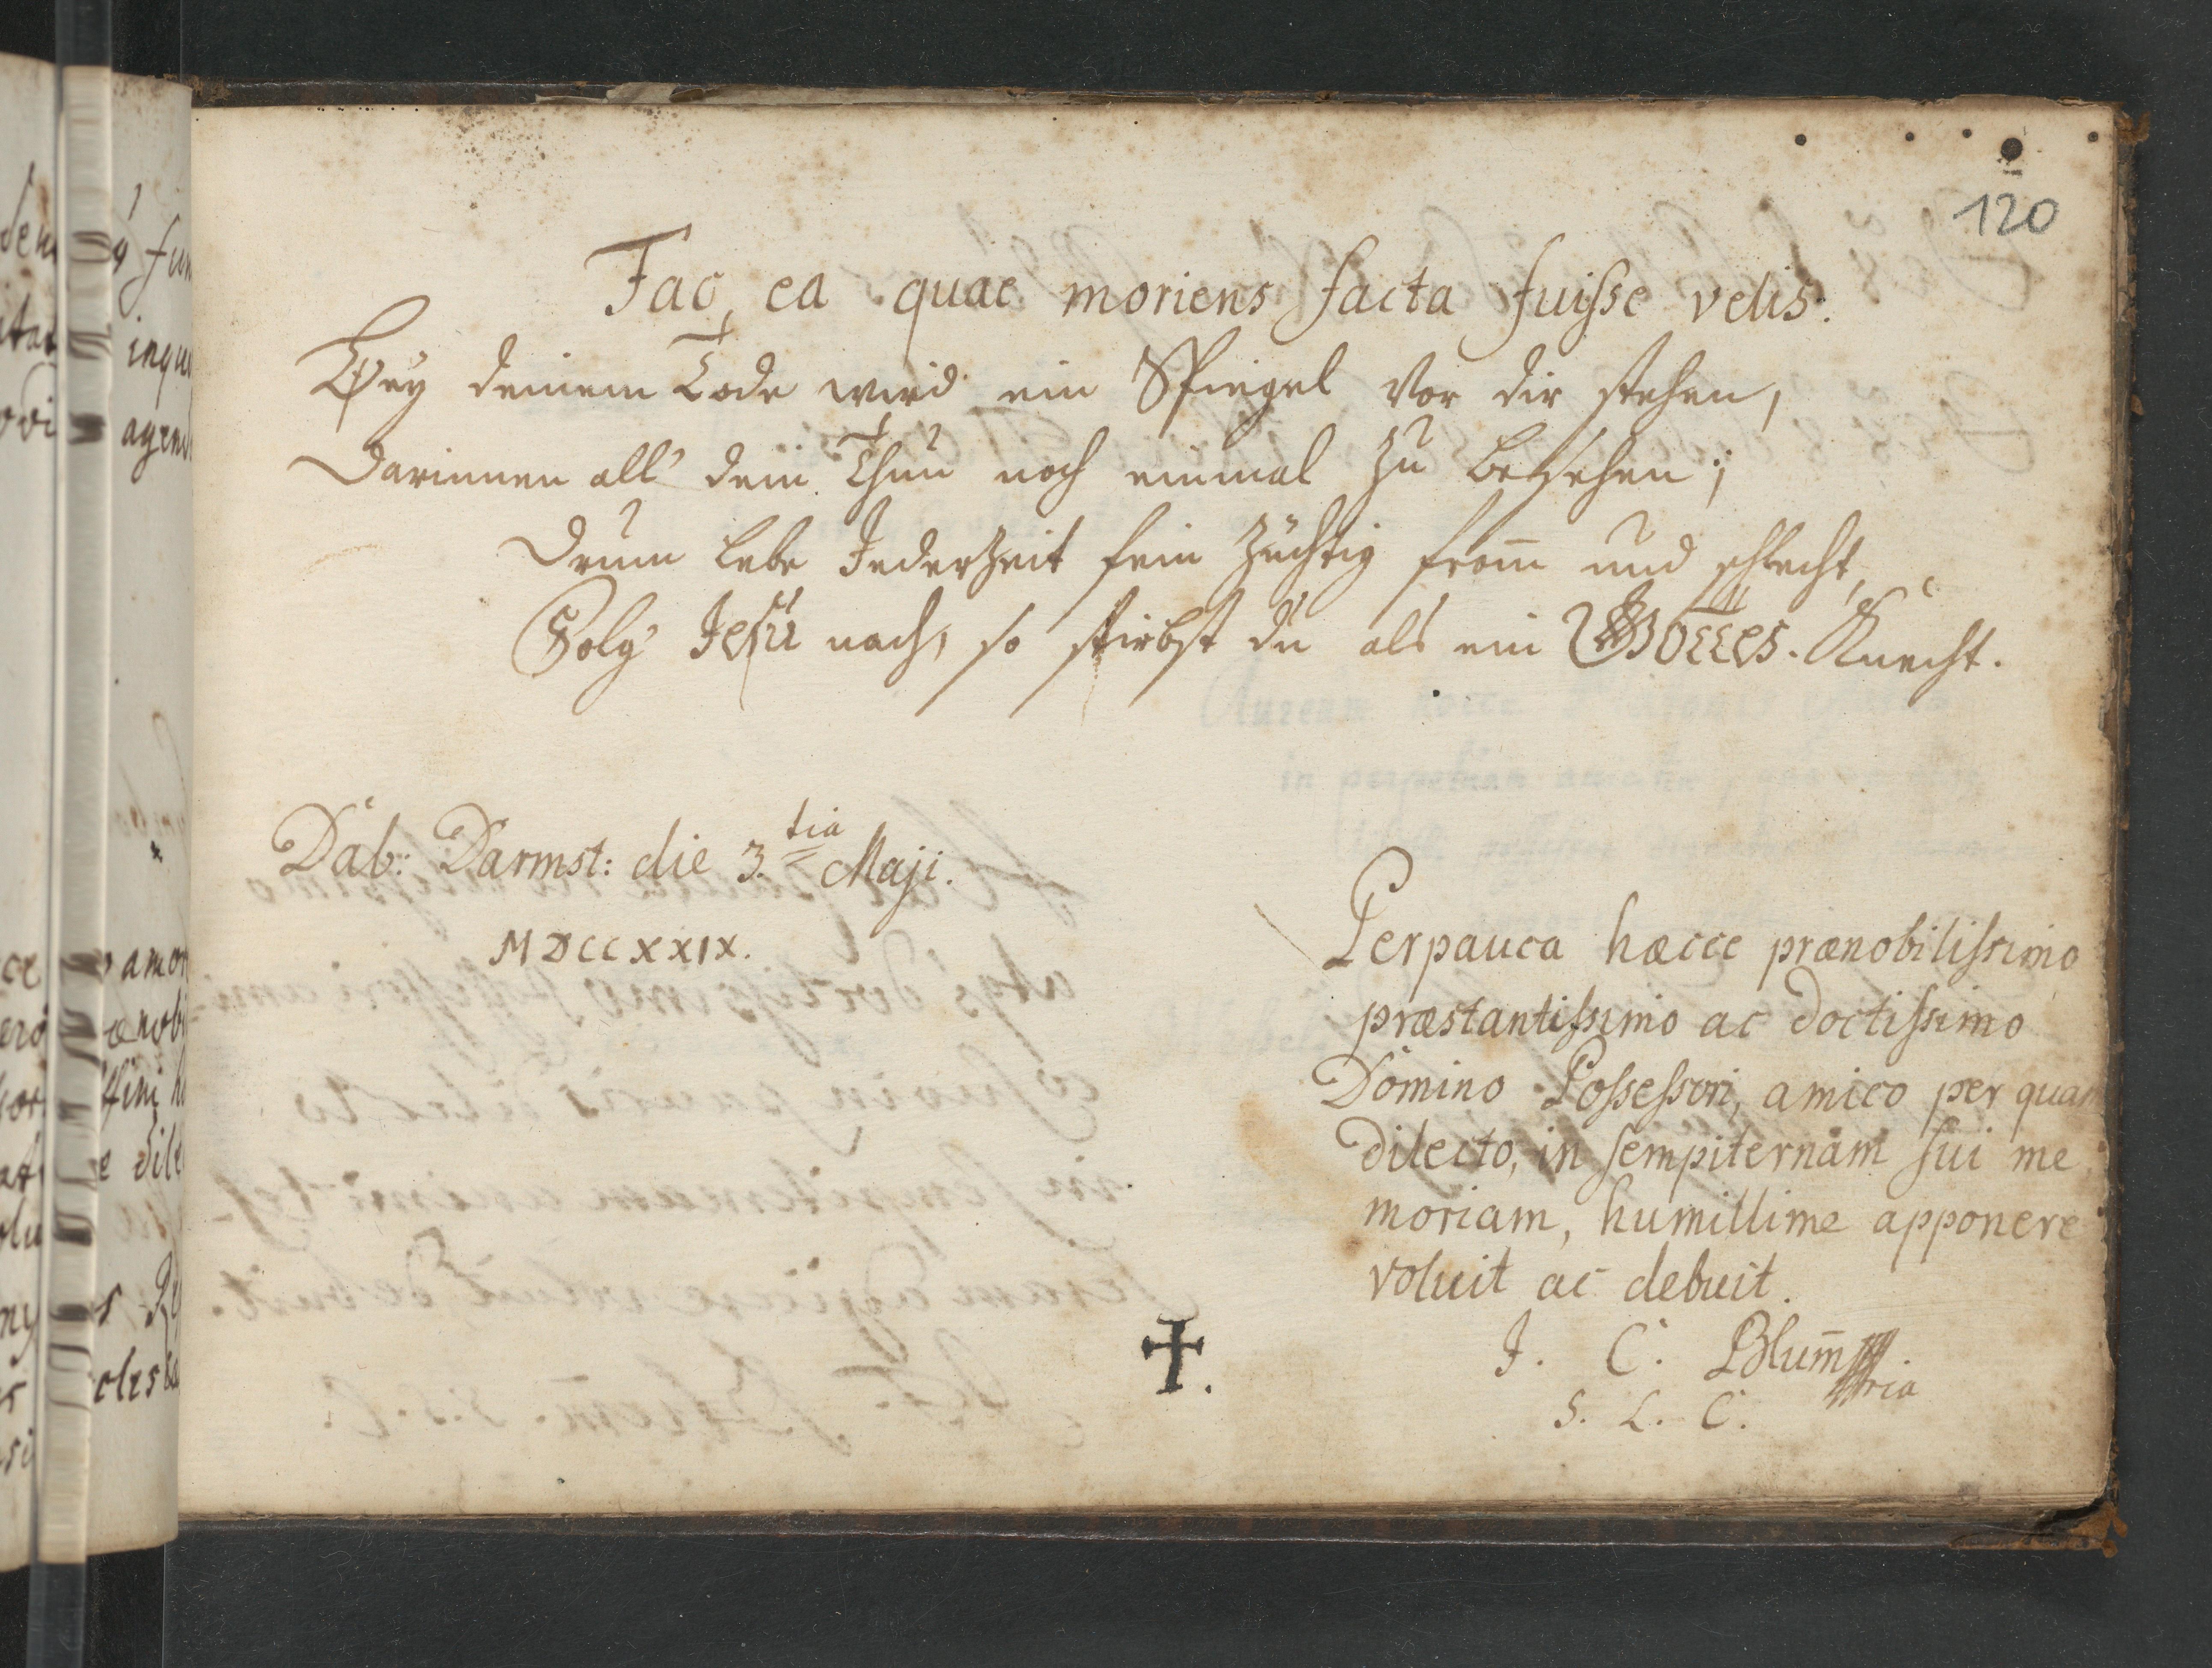 120
Fac, ea quae moriens facta fuisse velis.
Bey deinem Tode wird ein Spiegel vor dir stehen,
Darinnen all' dein Thun noch einmal zu besehen;
Drum lebe Jederzeit fein züchtig from̄ und schlecht,
Folg' Jesu nach, so stirbst du als ein GOTTES. Knecht.
Dab: Darmst: die 3.tia Maji.
MDCCXXIX.
Perpauca hæcce prænobilissimo
præstantissimo ac doctissimo
Domino Possessori, amico per quam
dilecto, in sempiternam sui me
moriam, humillime apponere
voluit ac debuit.
J. C. Blum̄
S. L. C.